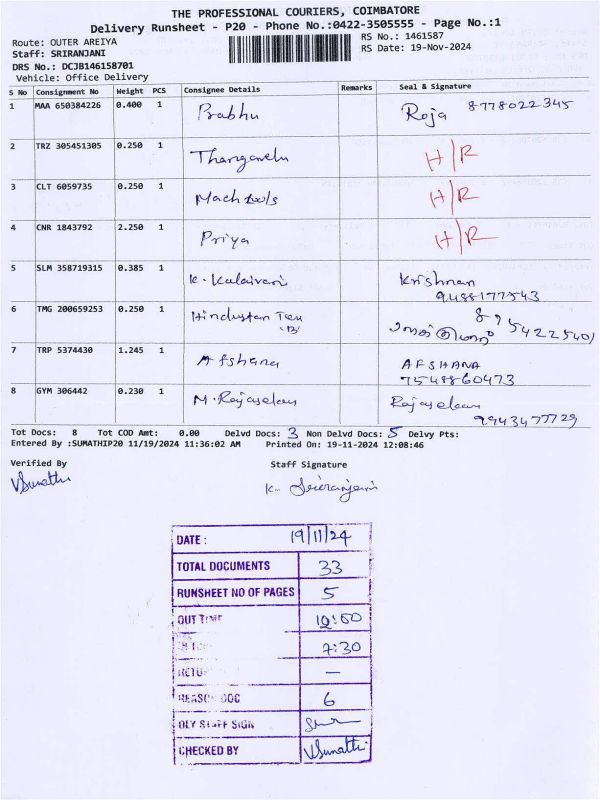 THE PROFESSIONAL COURIERS, COIMBATORE
Delivery Runsheet - P20 - Phone No.:0422-3505555 - Page No.:1
Route: OUTER AREIYA
RS No.: 1461587
Staff: SRIRANJANI
RS Date: 19-Nov-2024
DRS No.: DCJB146158701
Vehicle: Office Delivery
S No Consignment No Weight PCS Consignee Details Remarks Seal & Signature
1 MAA 650384226 0.400 1 Prabhu Roja 8778022345
2 TRZ 305451305 0.250 1 Thangavelu H/R
3 CLT 6059735 0.250 1 Mach tools H/R
4 CNR 1843792 2.250 1 Priya H/R
5 SLM 358719315 0.385 1 K. Kalaivani Krishnan
9488177543
6 TMG 200659253 0.250 1 Hindustan Tex
7 TRP 5374430 1.245 1 Afshana AFSHANA
7548860473
8 GYM 306442 0.230 1 M. Rajaselan Rajaselan
9943477729
Tot Docs: 8 Tot COD Amt: 0.00 Delvd Docs: 3 Non Delvd Docs: 5 Delvy Pts:
Entered By :SUMATHIP20 11/19/2024 11:36:02 AM Printed On: 19-11-2024 12:08:46
Verified By Staff Signature
VSumathi K. Sriranjani
DATE : 19/11/24
TOTAL DOCUMENTS 33
RUNSHEET NO OF PAGES 5
OUT TIME
7:30
RETU —
REASON DOC 6
DLY STAFF SIGN
CHECKED BY VSumathi